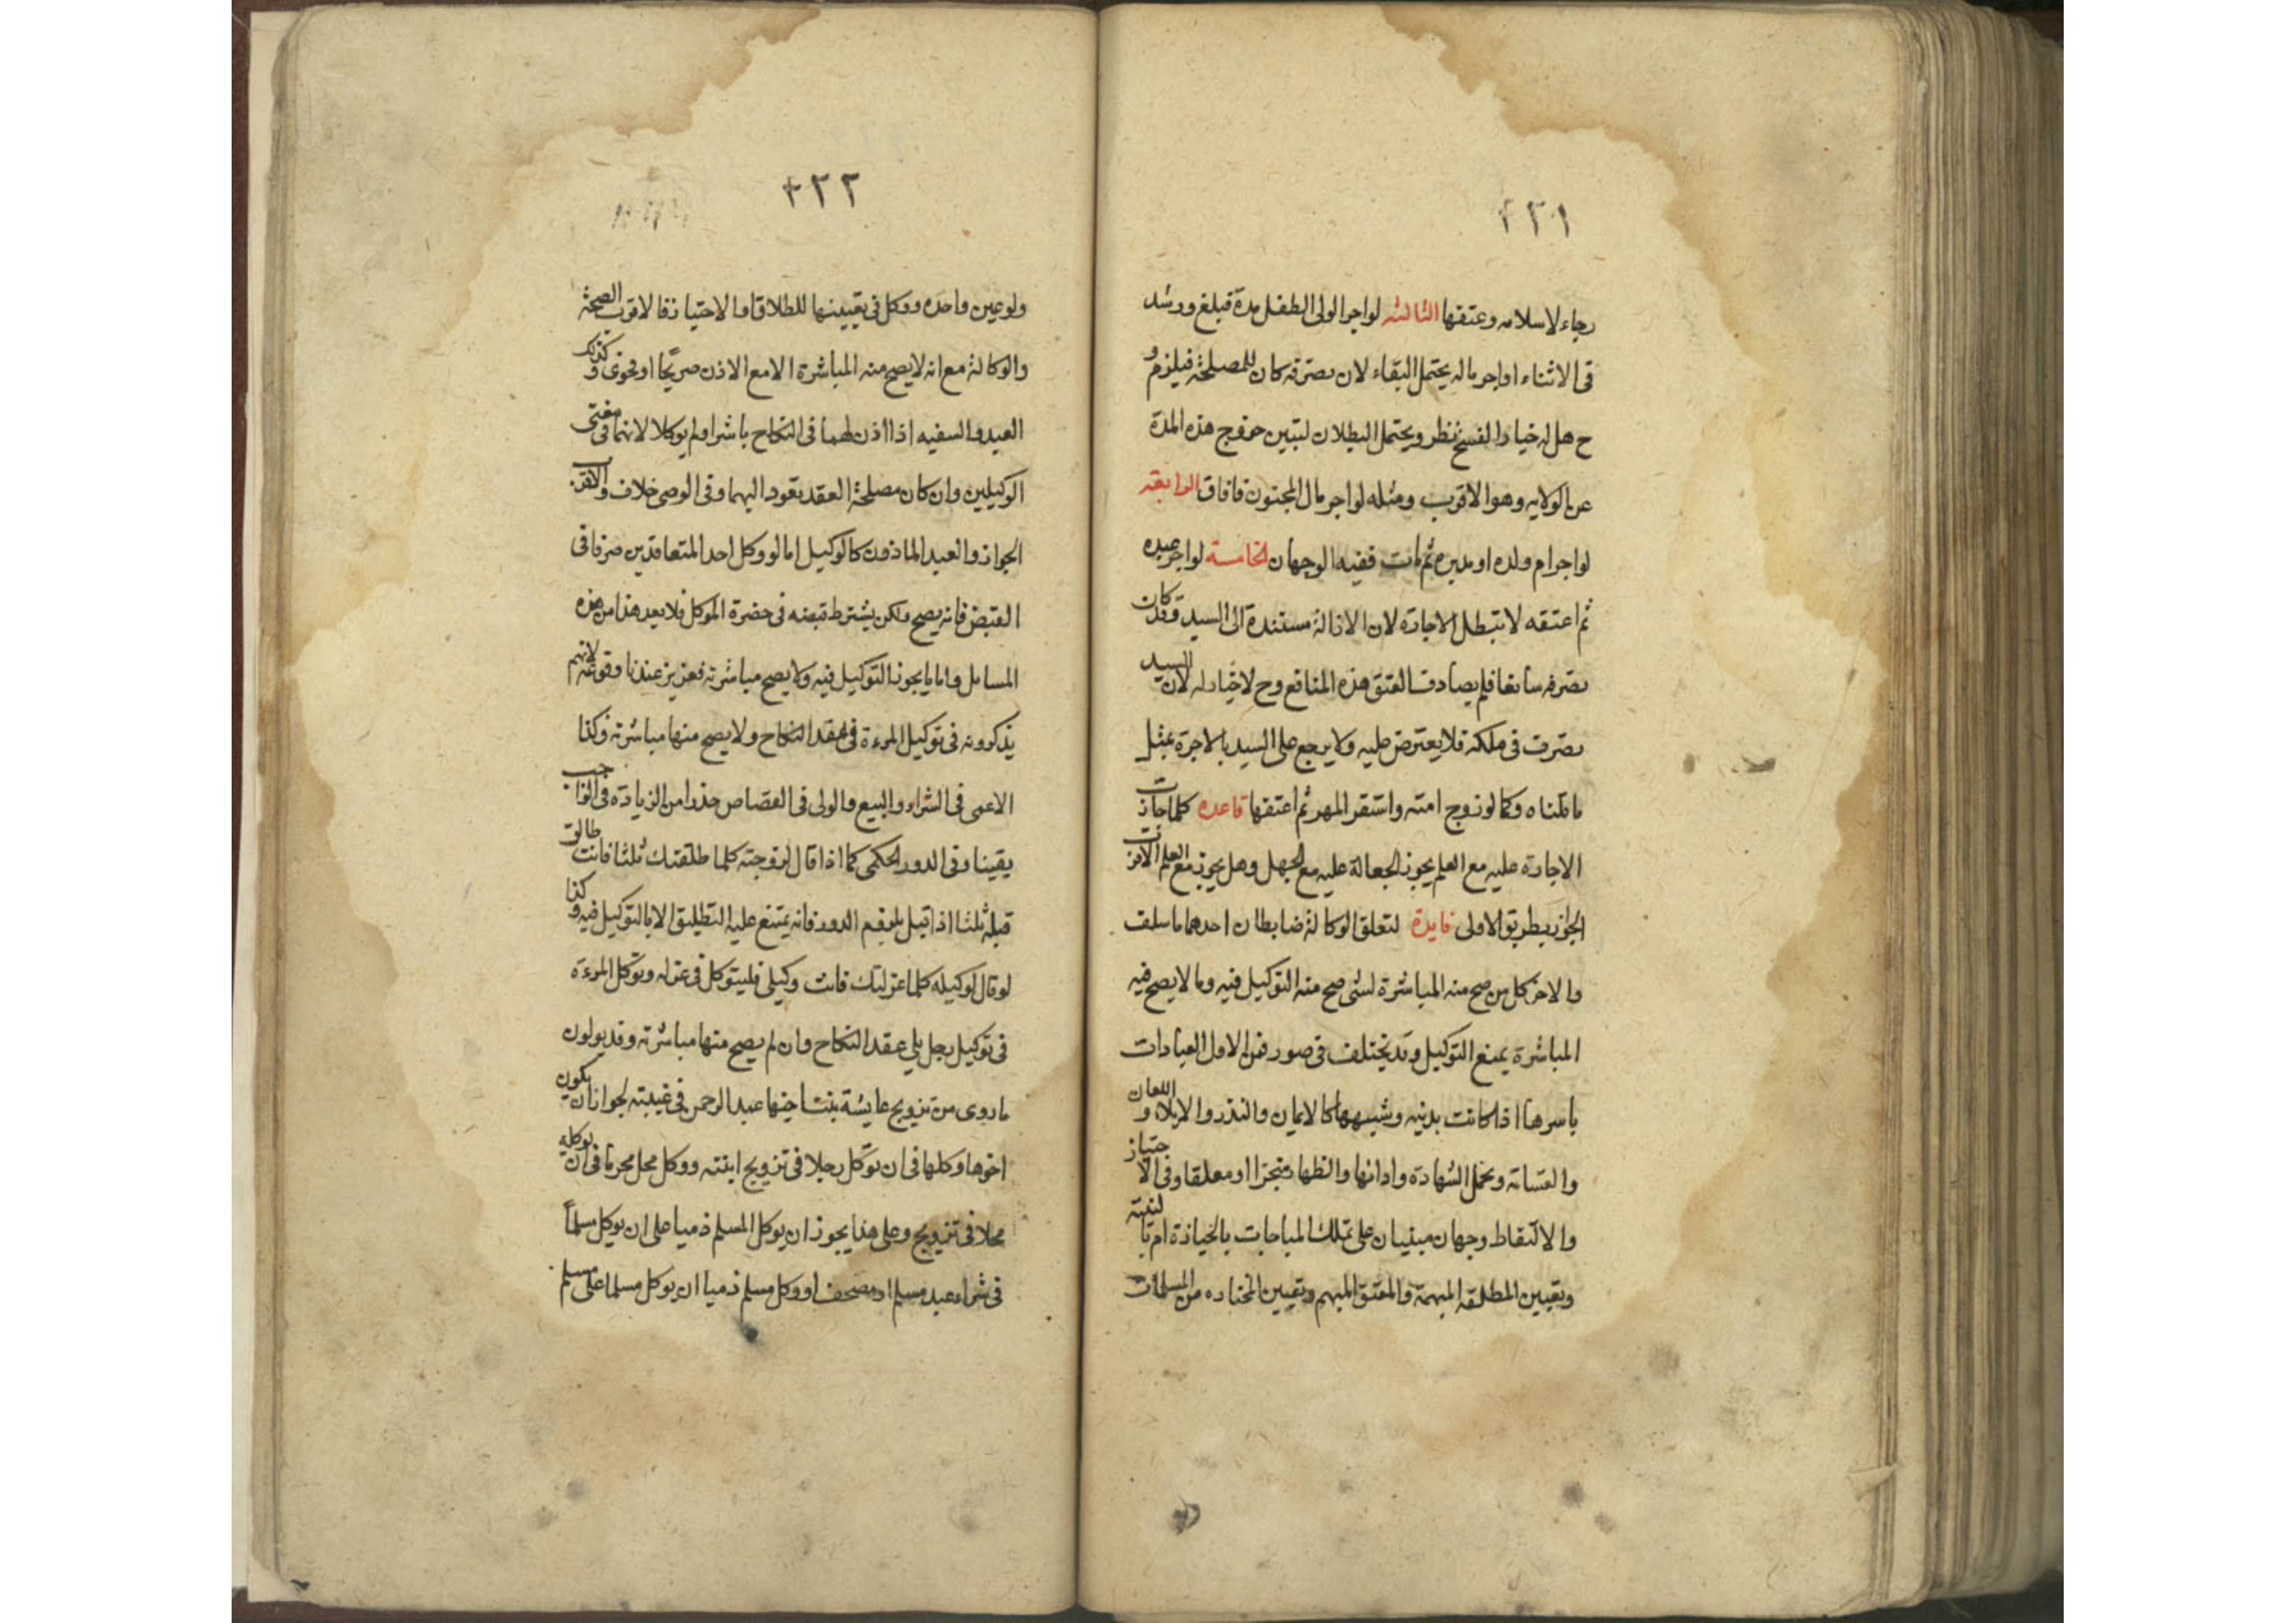 ٤٢١
رجاء لاسلامه وعتقها الثالثه لو اجر الولى الطفل مدة فبلغ ورشد
فى الاثناء او اجر ماله يحتمل البقاء لان تصرفه كان للمصلحة فيلزم و
ح هل له خيار الفسخ نظر ويحتمل البطلان لتبين خروج هذه المدة
عن الولايه وهو الاقوب ومثله لو اجر مال المجنون فافاق الرابعة
لو اجر ام ولده او مدبره ثم مات ففيه الوجهان الخامسة لو اجر عبده
ثم اعتقه لا تبطل الاجارة لان الازالة مستندة الى السيد وقد كان
تصرفه سابقا فلم يصادف العتق هذه المنافع وح لا خيار له لان السيد
تصرف فى ملكه فلا يعترض عليه ولا يرجع على السيد بالاجرة بمثل
ما قلناه وكما لو زوج امته واستقر المهر ثم اعتقها قاعده كلما جازت
الاجارة عليه مع العلم يجوز الجعالة عليه مع الجهل وهل يجوز مع العلم الاقرب
الجواز بطريق الاولى فايدة لتعلق الوكالة ضابطان احدهما ما سلف
والاخر كل من صح منه المباشرة لشئ صح منه التوكيل فيه وما لا يصح فيه
المباشرة يمنع التوكيل وقد تختلف فى صور فمن الاول العبادات
باسرها اذا كانت بدنيه وشبهها كالايمان والنذر والايلاء و اللعان
والقسامة وتحمل الشهادة وادائها والظهار منجزا او معلقا وفى الاحتياز
والالتقاط وجهان مبنيان على تملك المباحات بالحيازة ام بالنية
وتعيين المطلقه المبهمة والمعتق المبهم وتعيين المختاره من المسلمات
٤٢٢
ولو عين واحده ووكل فى تعيينها للطلاق او الاختيار فالاقرب الصحة
والوكالة مع انه لا يصح منه المباشرة الا مع الاذن صريحا او فحوى وكذلك
العبد والسفيه اذا اذن لهما فى النكاح باشرا ولم يوكلا لانهما فى معنى
الوكيلين وان كان مصلحة العقد تعود اليهما وفى الوصى خلاف والاقرب
الجواز والعبد الماذون كالوكيل اما لو وكل احد المتعاقدين صرفا فى
القبض فانه يصح ولكن يشترط قبضه فى حضرة الموكل فلا يعد هذا من هذه
المسايل واما ما يجوز التوكيل فيه ولا يصح مباشرته فعزيز عندنا وقوعه لانهم
يذكرونه فى توكيل المرءة فى عقد النكاح ولا يصح منها مباشرته وكذا
الاعمى فى الشراء والبيع والولى فى القصاص حذرا من الزيادة فى الواجب
يقينا وفى الدور الحكمى كما اذا قال لزوجته كلما طلقتك ثلثا فانت طالق
قبله ثلثا اذا قيل بلزوم الدور فانه يمتنع عليه التطليق الا بالتوكيل فيه وكذا
لو قال لوكيله كلما عزلتك فانت وكيلى فليتوكل فى عزله وتوكل المرءة
فى توكيل رجل يلى عقد النكاح وان لم يصح منها مباشرته وقد يولون
ما روى من تزويج عايشة بنت اخيها عبد الرحمن فى غيبته لجواز ان يكون
اخوها وكلها فى ان توكل رجلا فى تزويج ابنته ووكل محل محرما فى ان يوكله
محلا فى تزويج وعلى هذا يجوز ان يوكل المسلم ذميا على ان يوكل مسلماً
فى شراء عبد مسلم او مصحف او وكل مسلم ذميا ان يوكل مسلما على مسلم